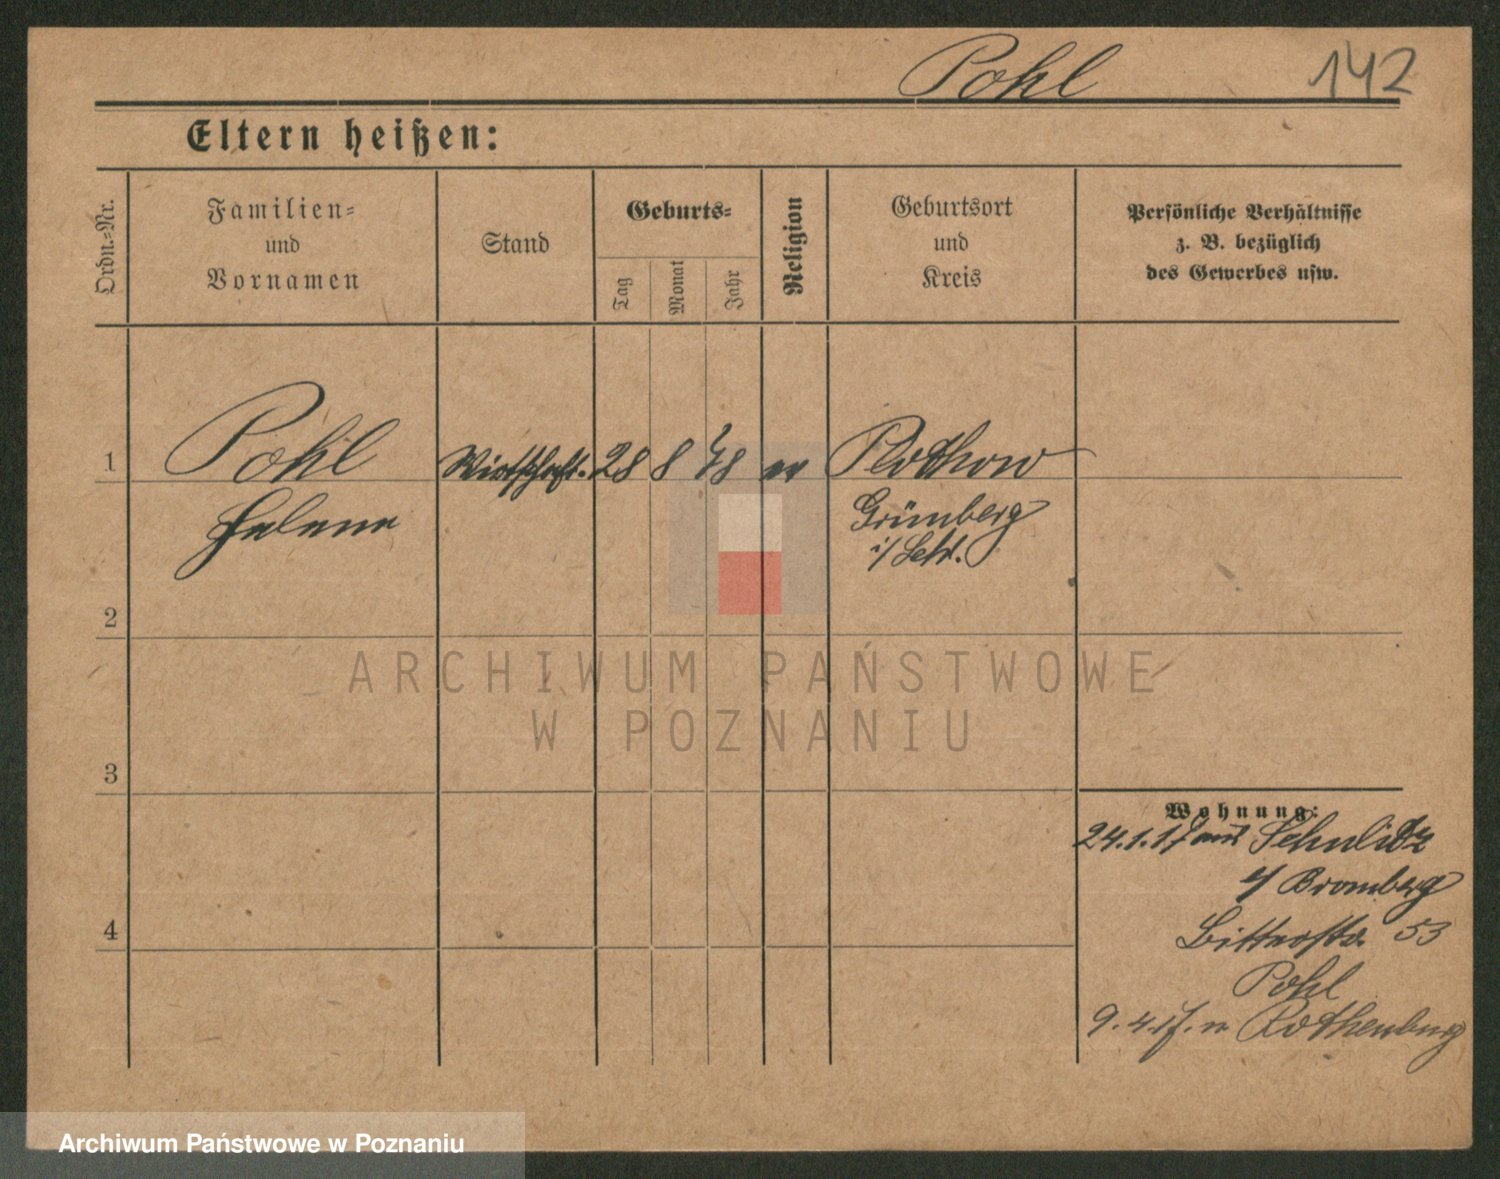 Pohl 142
Eltern heißen:
Ordn.=Nr.
Familien=
und
Vornamen
Stand
Geburts=
Tag
Monat
Jahr
Religion
Geburtsort
und
Kreis
Persönliche Verhältnisse
z. B. bezüglich
des Gewerbes usw.
1 Pohl Wirtschaft. 28 8 78 ev Rothow
Helene Grünberg
i/Schl.
2
3
4
Wohnung:
24.1.17 aus Schulitz
b/ Bromberg
Ritterstr. 53
Pohl
9.4.17. n Rothenburg
ARCHIWUM PAŃSTWOWE
W POZNANIU
Archiwum Państwowe w Poznaniu